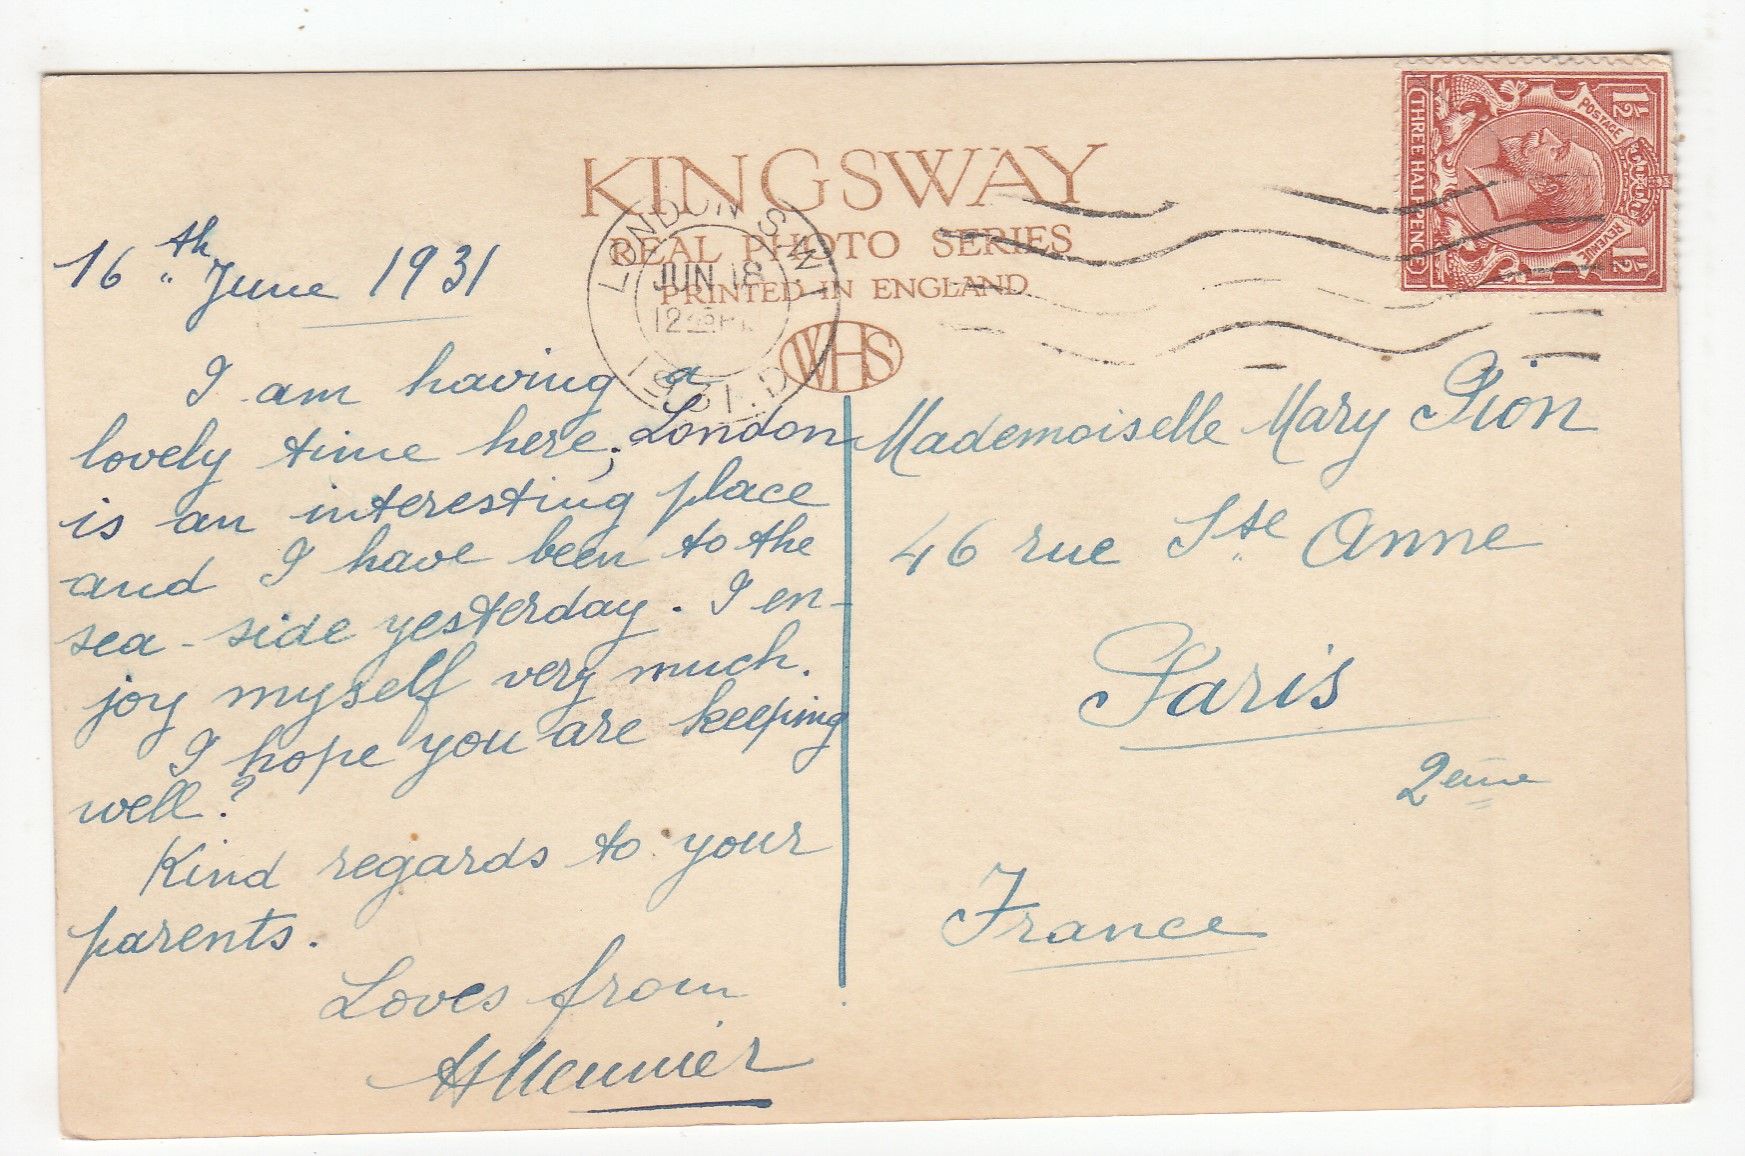 KINGSWAY
REAL PHOTO SERIES
PRINTED IN ENGLAND
WHS
LONDON S.W.1
JUN 18
12
1931
POSTAGE
REVENUE
1½
1½
THREE HALFPENCE
16th June 1931
I am having a
lovely time here; London
is an interesting place
and I have been to the
sea-side yesterday. I en-
joy myself very much.
I hope you are keeping
well?
Kind regards to your
parents.
Loves from
Meunier
Mademoiselle Mary Pion
46 rue Ste Anne
Paris
2eme
France